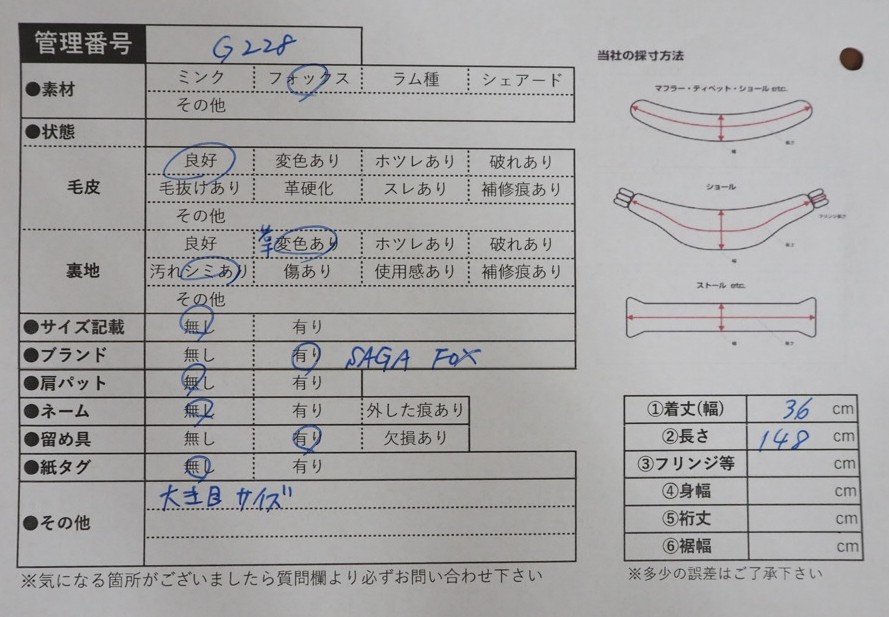 管理番号 G228
●素材 ミンク フォックス ラム種 シェアード
その他
●状態
毛皮 良好 変色あり ホツレあり 破れあり
毛抜けあり 革硬化 スレあり 補修痕あり
その他
裏地 良好 変色あり ホツレあり 破れあり
汚れシミあり 傷あり 使用感あり 補修痕あり
その他
●サイズ記載 無し 有り
●ブランド 無し 有り SAGA FOX
●肩パット 無し 有り
●ネーム 無し 有り 外した痕あり
●留め具 無し 有り 欠損あり
●紙タグ 無し 有り
●その他 大きめ サイズ
※気になる箇所がございましたら質問欄より必ずお問い合わせ下さい
当社の採寸方法
マフラー・ティペット・ショール etc.
幅
長さ
ショール
フリンジ長さ
幅
長さ
ストール etc.
幅
長さ
①着丈(幅) 36 cm
②長さ 148 cm
③フリンジ等 cm
④身幅 cm
⑤裄丈 cm
⑥裾幅 cm
※多少の誤差はご了承下さい